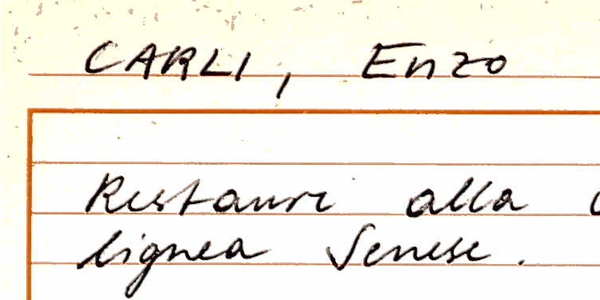 CARLI, Enzo
Restauri alla
lignea Senese.